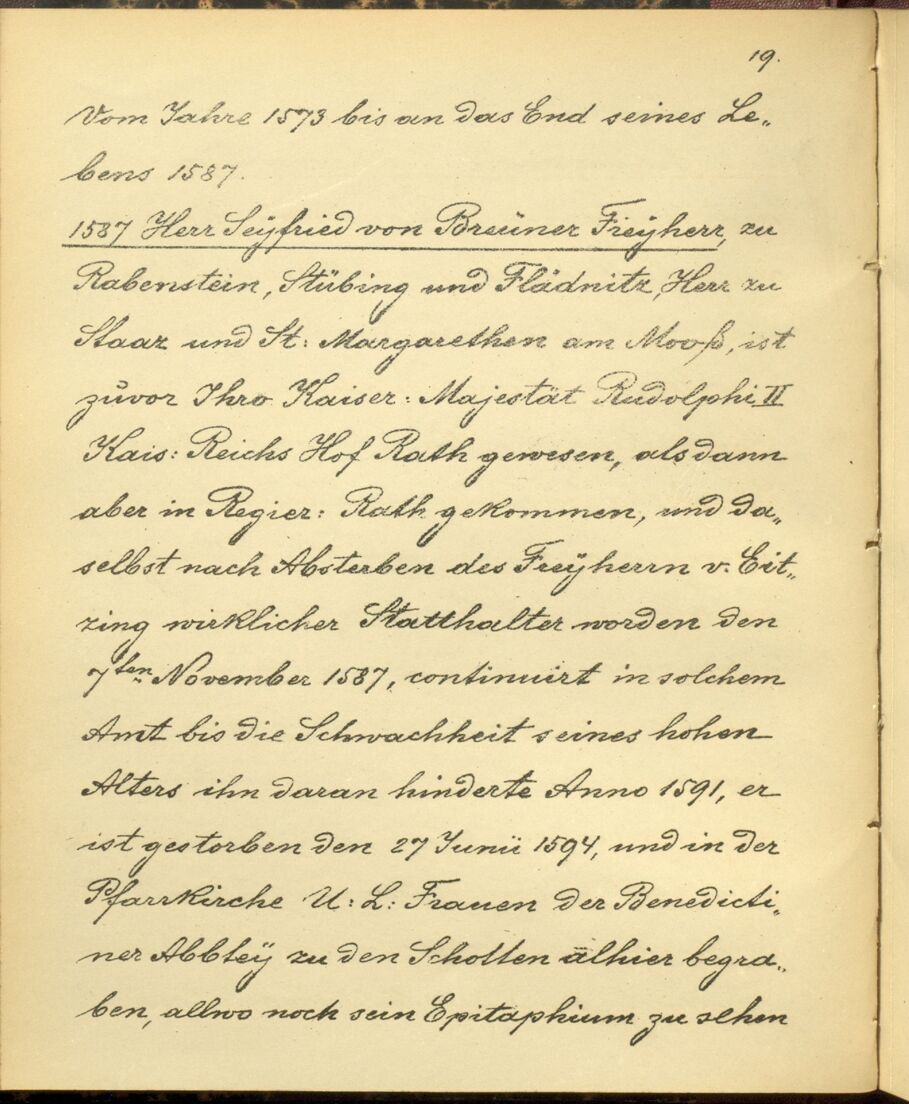 19.
Vom Jahre 1573 bis an das End seines Le„
bens 1587.
1587 Herr Seÿfried von Breüner Freÿherr, zu
Rabenstein, Stübing und Flädnitz, Herr zu
Staaz und St: Margarethen am Mooß, ist
zůvor Ihro Kaiser: Majestät Rudolphi II
Kais: Reichs Hof Rath gewesen, als dann
aber in Regier: Rath gekommen, und da„
selbst nach Absterben des Freÿherrn v. Eit„
zing wirklicher Statthalter worden den
7ten November 1587, continuirt in solchem
Amt bis die Schwachheit seines hohen
Alters ihn daran hinderte Anno 1591, er
ist gestorben den 27 Junii 1594, und in der
Pfarrkirche U: L: Frauen der Benedicti„
ner Abbteÿ zu den Schotten älhier begra„
ben, allwo noch sein Epitaphium zu sehen